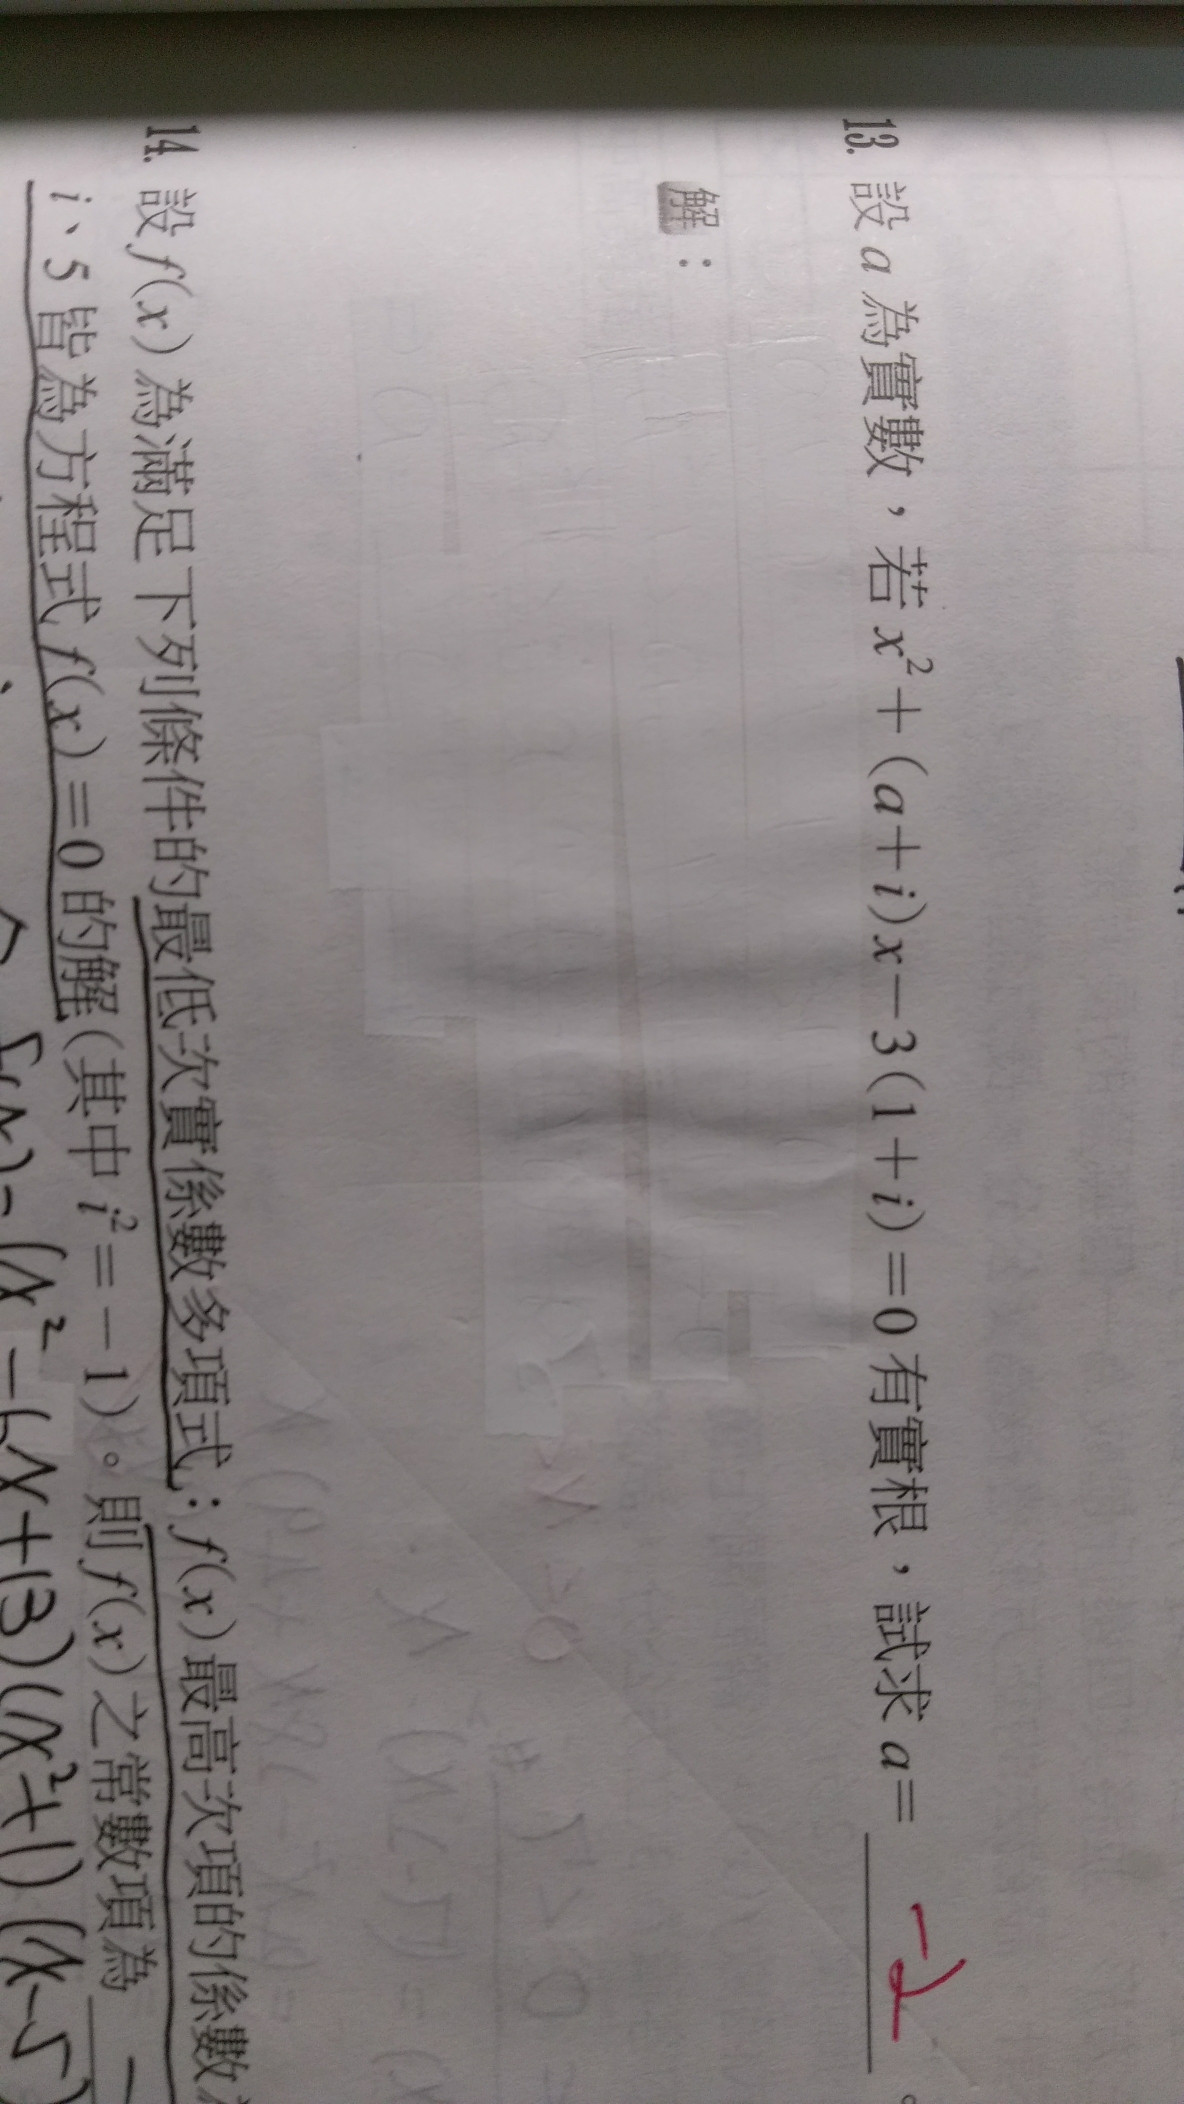 13. 設 a 為實數，若 x²+(a+i)x-3(1+i)=0 有實根，試求 a= -2 。
解：
14. 設 f(x) 為滿足下列條件的最低次實係數多項式：f(x) 最高次項的係數
i、5 皆為方程式 f(x)=0 的解(其中 i²=-1)。則 f(x) 之常數項為
f(x)=(x²-6x+13)(x²+1)(x-5)